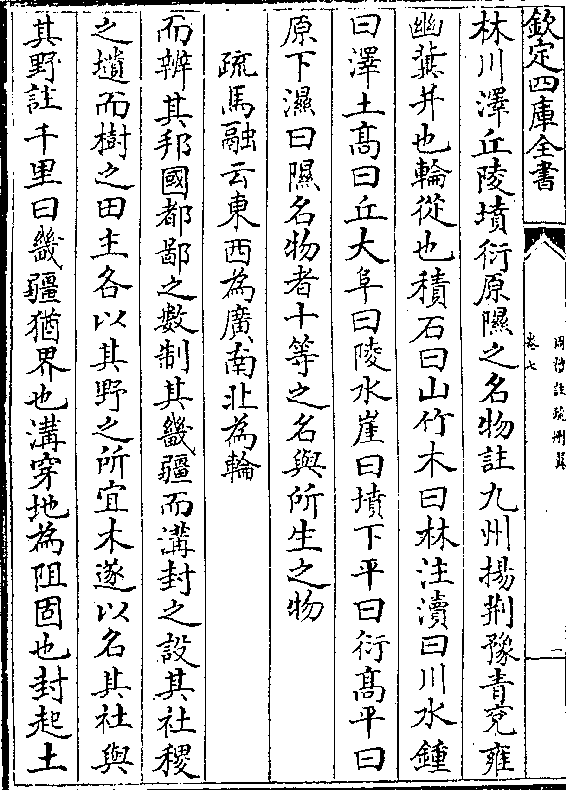 欽定四庫全書
周禮註疏刪翼
卷七
林川澤丘陵墳衍原隰之名物註九州揚荆豫青兖雍
幽冀并也輪從也積石曰山竹木曰林注瀆曰川水鍾
曰澤土髙曰丘大阜曰陵水崖曰墳下平曰衍髙平曰
原下濕曰隰名物者十等之名與所生之物
疏馬融云東西為廣南北為輪
而辨其邦國都鄙之數制其畿疆而溝封之設其社稷
之壝而樹之田主各以其野之所宜木遂以名其社與
其野註千里曰畿疆猶界也溝穿地為阻固也封起土